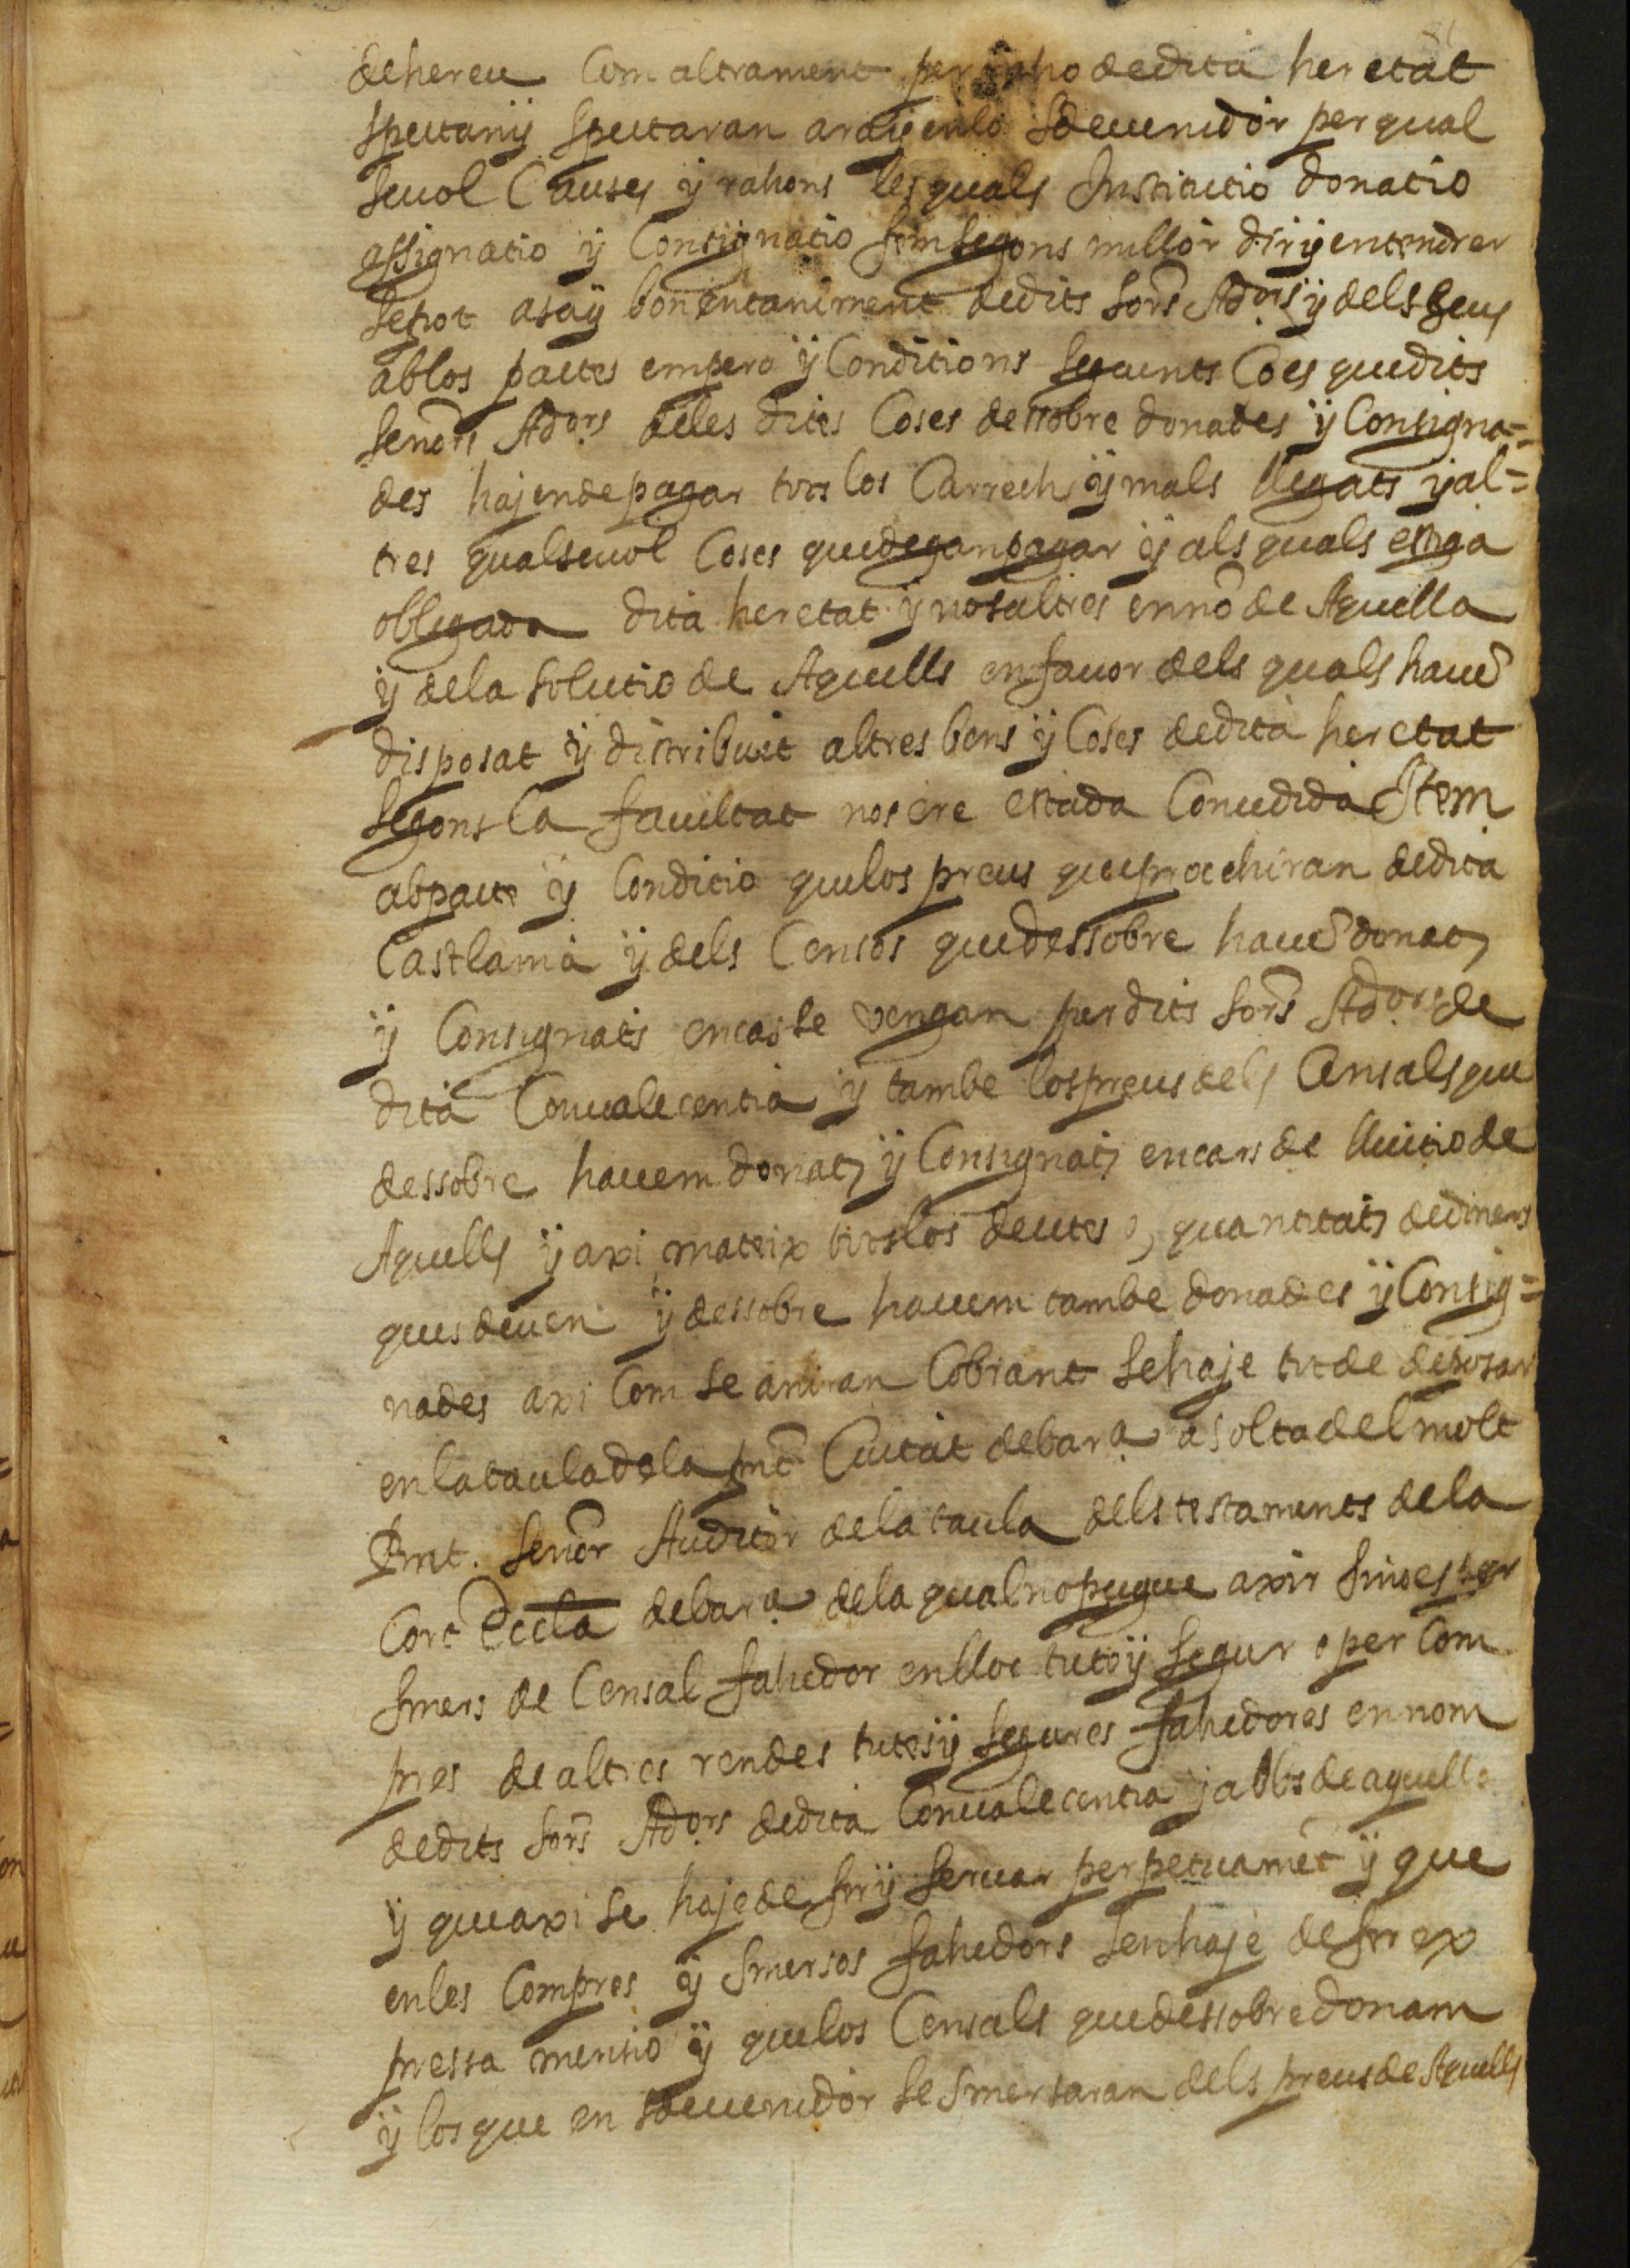 de hereu Com altrament per raho de dita heretat
spectan y spectaran ara y en lo sdevenidor per qual
seuol Causes y rahons les quals Institutio donatio
assignatio y Consignatio fem segons millor dir y entendrer
se pot a sa y bon enteniment de dits sors Adors y dels seus
ab los pactes empero y Conditions seguents Co es que dits
senors Adors de les dites Coses dessobre donades y Consigna=
des hajen de pagar tots los Carrechs y mals llegats y al=
tres qualseuol Coses que degan pagar y als quals estiga
obligada dita heretat y nosaltres en no de Aquella
y de la solutio de Aquells en fauor dels quals haue
disposat y distribuit altres bens y Coses de dita heretat
segons la facultat nos ere estada Concedida Item
ab pacte y Conditio que los preus que procehiran de dita
Castlania y dels Censos que dessobre haue donats
y Consignats en cas se vengan per dits sors Adors de
dita Conualecentia y tambe los preus dels Censals que
dessobre hauem donats y Consignats en cars de lluitio de
Aquells y axi mateix tots los deutes o, quantitats de diners
que s deuen y dessobre hauem tambe donades y Consig=
nades axi Com se aniran Cobrant se haje tot de deposar
en la taula de la pnt Ciutat de bara a solta del molt
Rnt. senor Auditor de la taula dels testaments de la
Cort Eccla de bara de la qual no pugue axir sino es per
smers de Censal fahedor en lloc tuto y segur o per Com
pres de altres rendes tutes y segures fahedores en nom
de dits sors Adors de dita Conualecentia y a obs de aquella
y que axi se haje de fer y seruar perpetuamet y que
en les Compres y smersos fahedors sen haje de fer ex
pressa mensio y que los Censals que dessobre donam
y los que en sdeuenidor se smersaran dels preus de Aquells